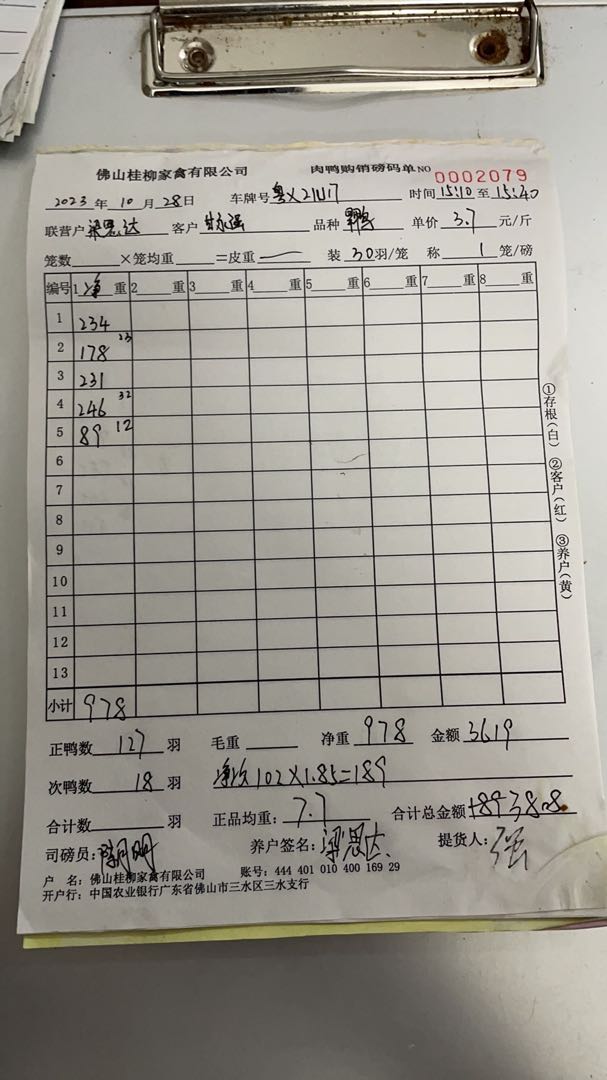 佛山桂柳家禽有限公司 肉鸭购销磅码单 NO 0002079
2023 年 10 月 28 日 车牌号 粤X21U17 时间 15:10 至 15:40
联营户 梁思达 客户 品种 单价 3.7 元/斤
笼数 ×笼均重 =皮重 装 30 羽/笼 称 1 笼/磅
编号 1 净 重 2 重 3 重 4 重 5 重 6 重 7 重 8 重
1 234
2 178 23
3 231
4 246 32
5 89 12
6
7
8
9
10
11
12
13
小计 978
①存根(白) ②客户(红) ③养户(黄)
正鸭数 127 羽 毛重 净重 978 金额 3619
次鸭数 18 羽 净次 102×1.85=189
合计数 羽 正品均重: 7.7 合计总金额
司磅员: 养户签名: 梁思达 提货人: 强
户 名: 佛山桂柳家禽有限公司 账号: 444 401 010 400 169 29
开户行: 中国农业银行广东省佛山市三水区三水支行